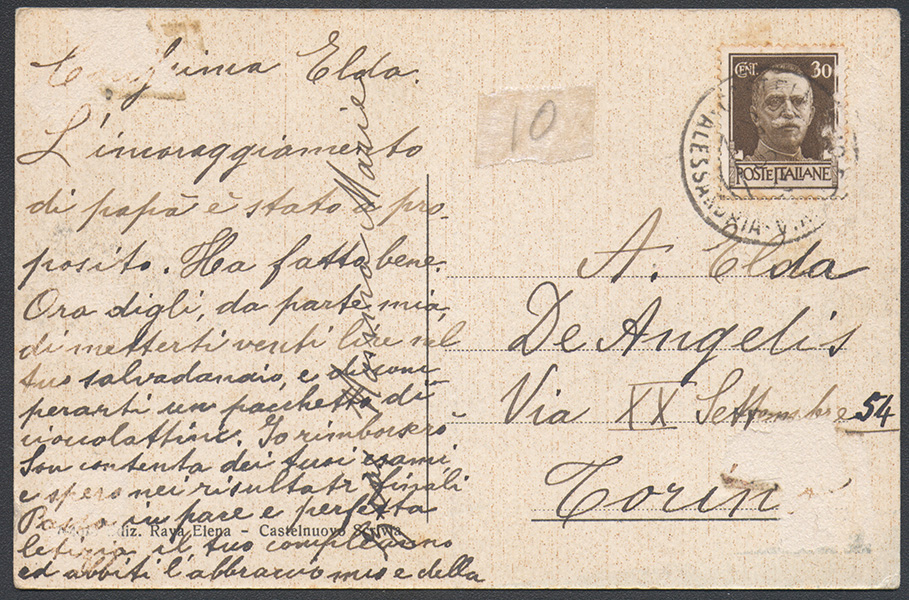 Elda.
L'incoraggiamento
di papà è stato a pro-
posito. Ha fatto bene.
Ora digli, da parte mia,
di metterti venti lire nel
tuo salvadanaio, e di com
perarti un pacchetto di
cioccolattini. Io rimborserò
Son contenta dei tuoi esami
e spero nei risultati finali
Passa in pace e perfetta
letizia il tuo compleanno
ed abbiti l'abbraccio mio e della
Mamma Marie
diz. Rava Elena - Castelnuovo Scrivia
10
CENT. 30
POSTE ITALIANE
ALESSANDRIA
A. Elda
De Angelis
Via XX Settembre 54
Torin